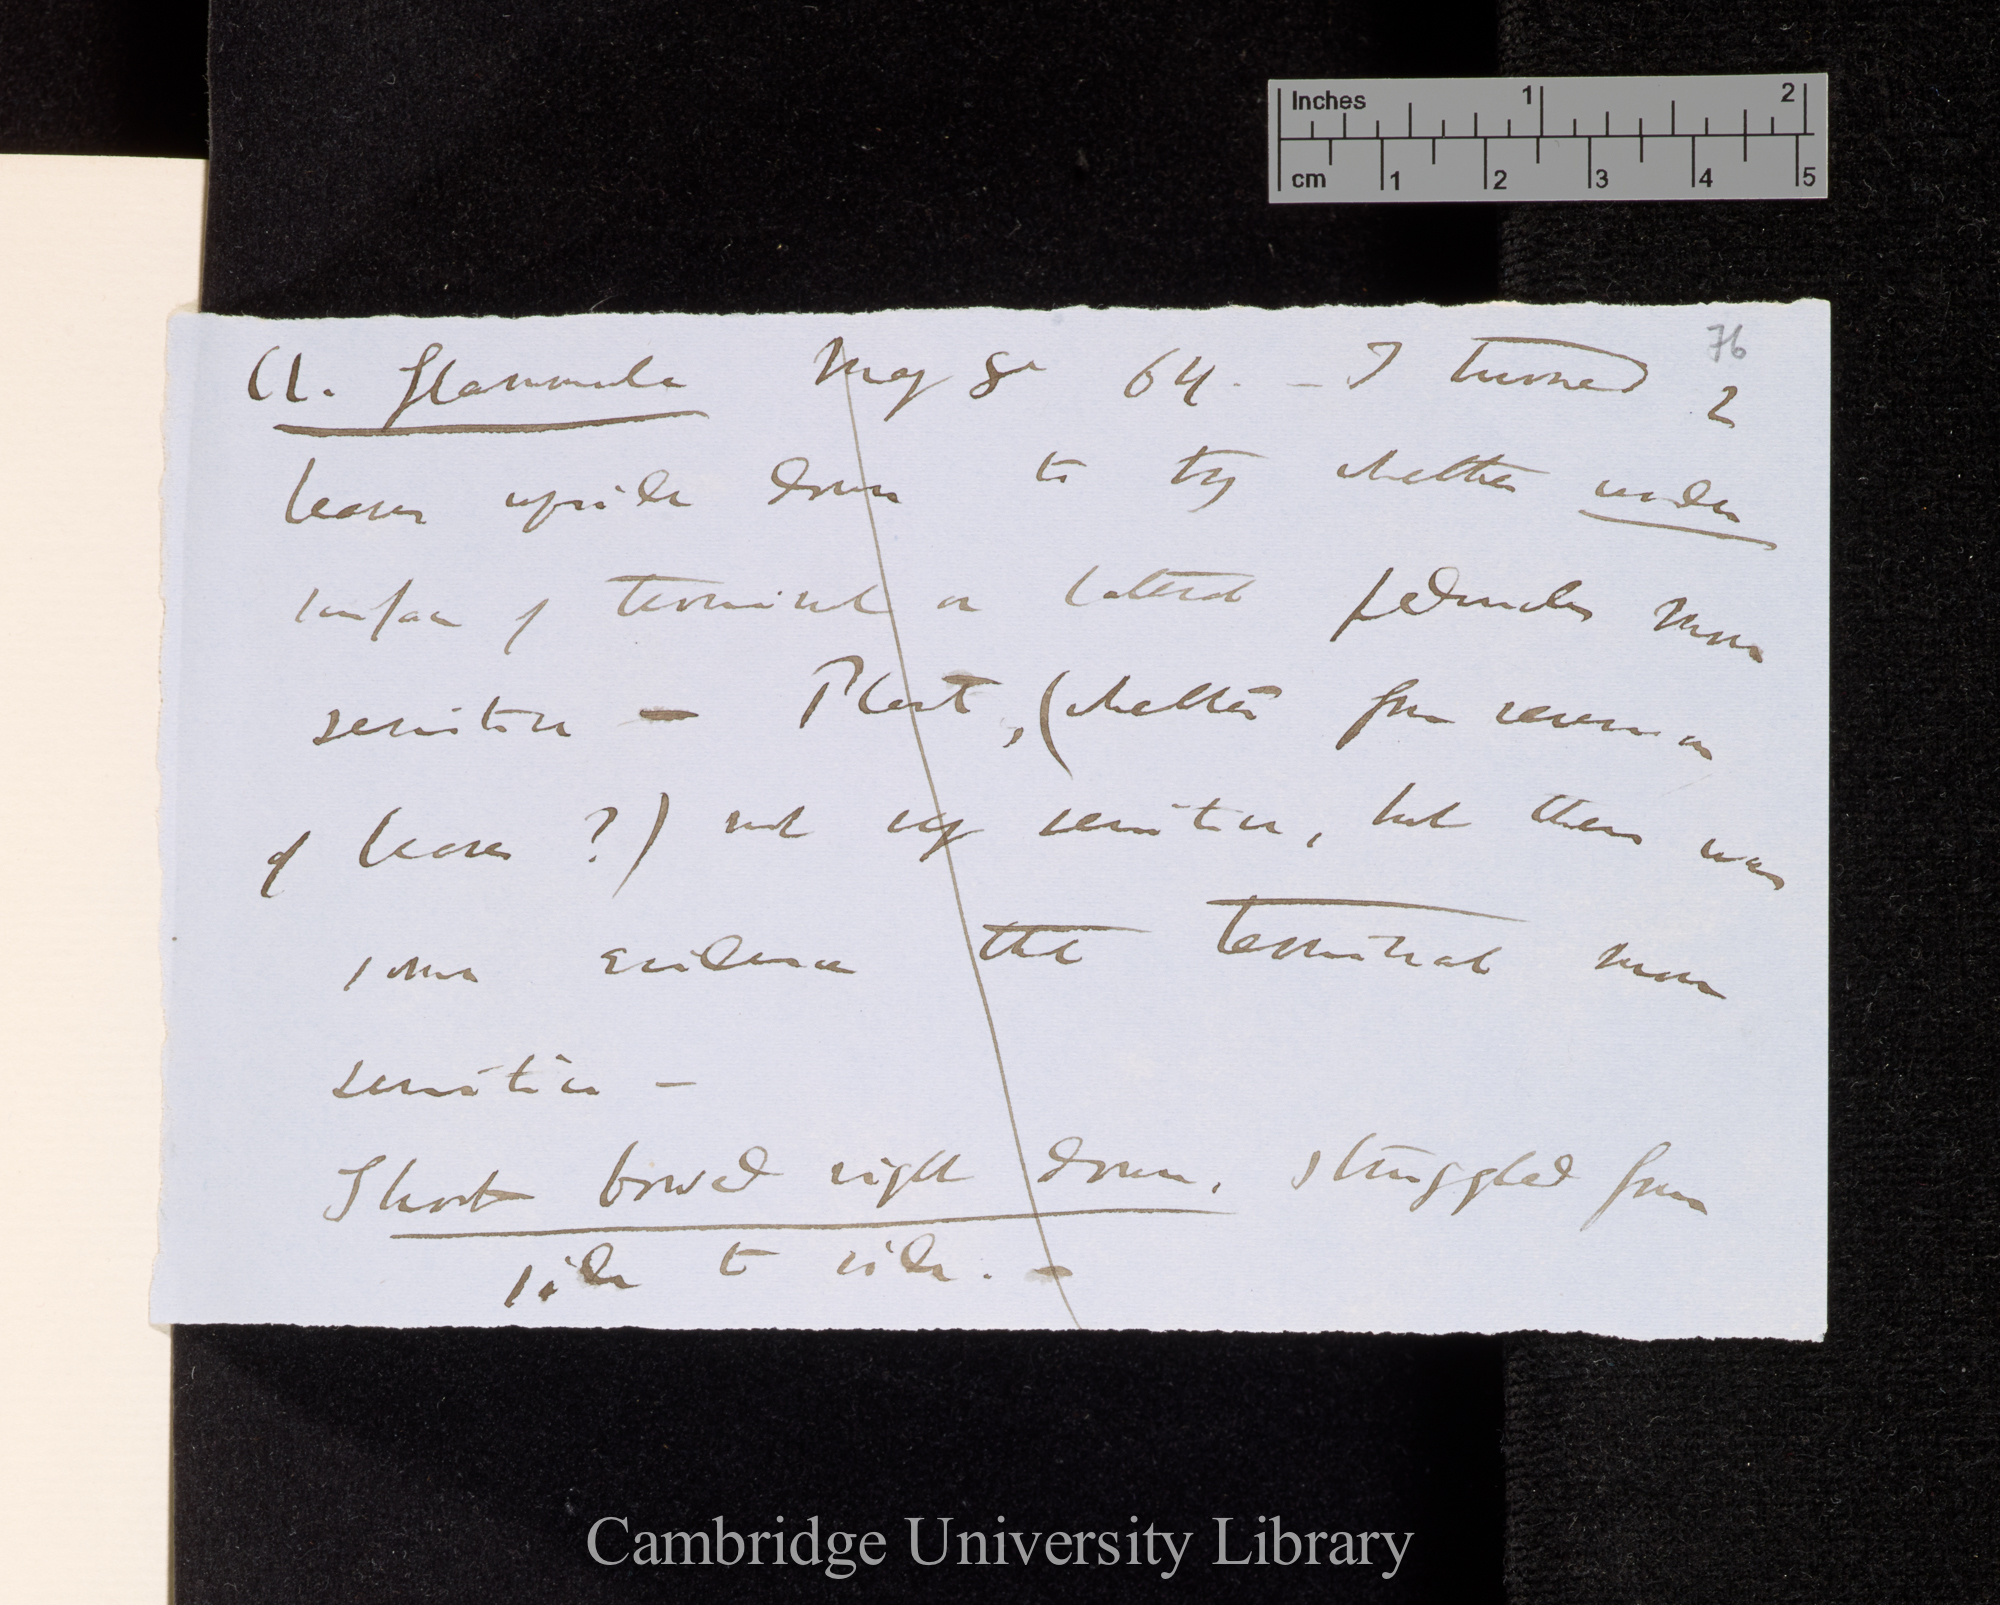 Inches 1 2
cm 1 2 3 4 5
76
Cl. flammula May 8th 64. — I turned 2
leaves upside down to try whether under
surface of terminal or lateral peduncles more
sensitive — Plant, (whether from reversion
of leaves?) not very sensitive, but there was
some evidence that terminal more
sensitive —
Shoot bowed right down, struggled from
side to side. —
Cambridge University Library